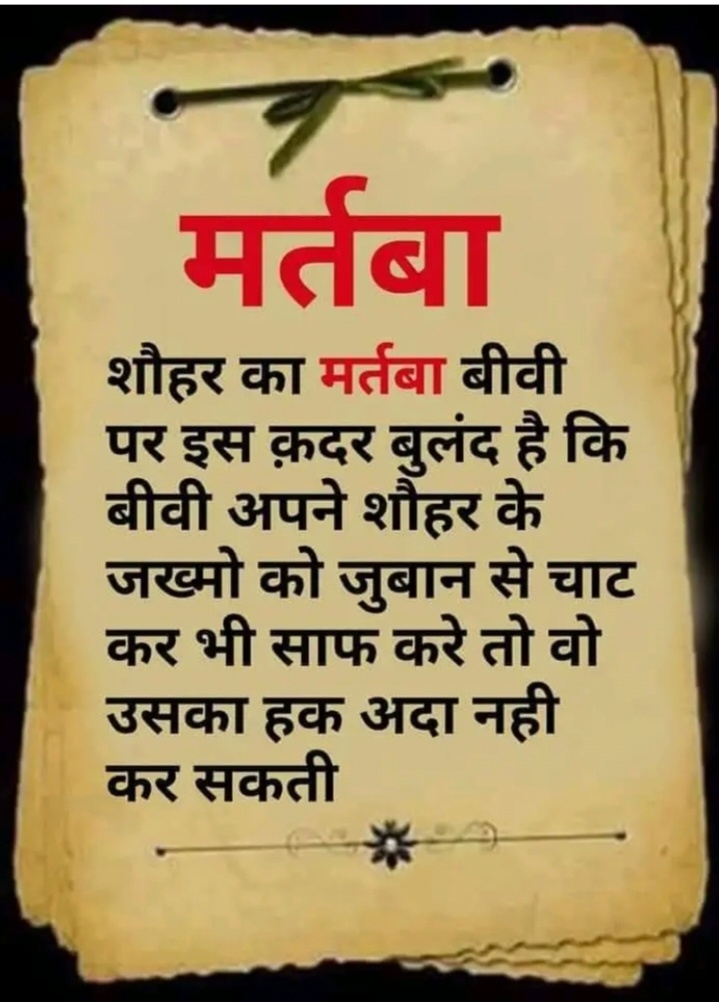 मर्तबा
शौहर का मर्तबा बीवी
पर इस क़दर बुलंद है कि
बीवी अपने शौहर के
जख्मो को जुबान से चाट
कर भी साफ करे तो वो
उसका हक अदा नही
कर सकती